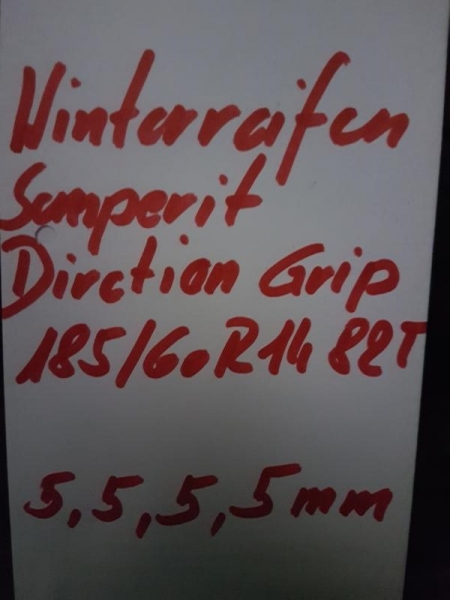 Winterreifen
Semperit
Dirction Grip
185/60R14 82T
5,5,5,5mm